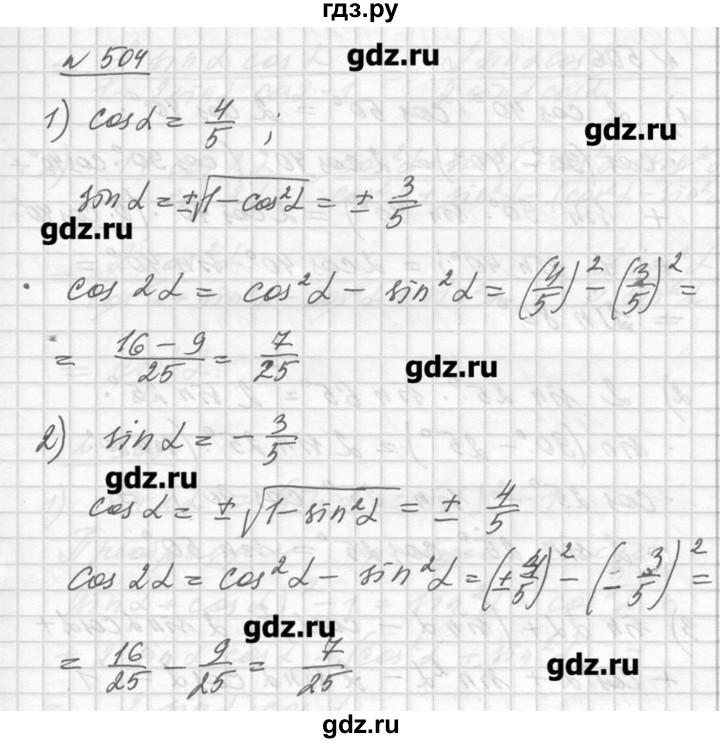 гдз.ру
№ 504
gdz.ru
1) cos α = 4/5 ;
gdz.ru
sin α = ±√(1 − cos²α) = ± 3/5
gdz.ru
cos 2α = cos²α − sin²α = (4/5)² − (3/5)² =
= (16 − 9)/25 = 7/25
gdz.ru
2) sin α = − 3/5
gdz.ru
cos α = ±√(1 − sin²α) = ± 4/5
cos 2α = cos²α − sin²α = (± 4/5)² − (− 3/5)² =
gdz.ru
= 16/25 − 9/25 = 7/25
gdz.ru
gdz.ru